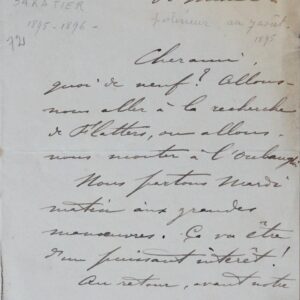 SABATIER
1895-1896-
postérieur au 7 août
1895
Cher ami,
quoi de neuf? Allons-
nous aller à la recherche
de Flatters, ou allons-
nous monter à l'Oubangh
Nous partons Mardi
matin aux grandes
manœuvres. Ça va être
d'un puissant intérêt!
Au retour, avant notre